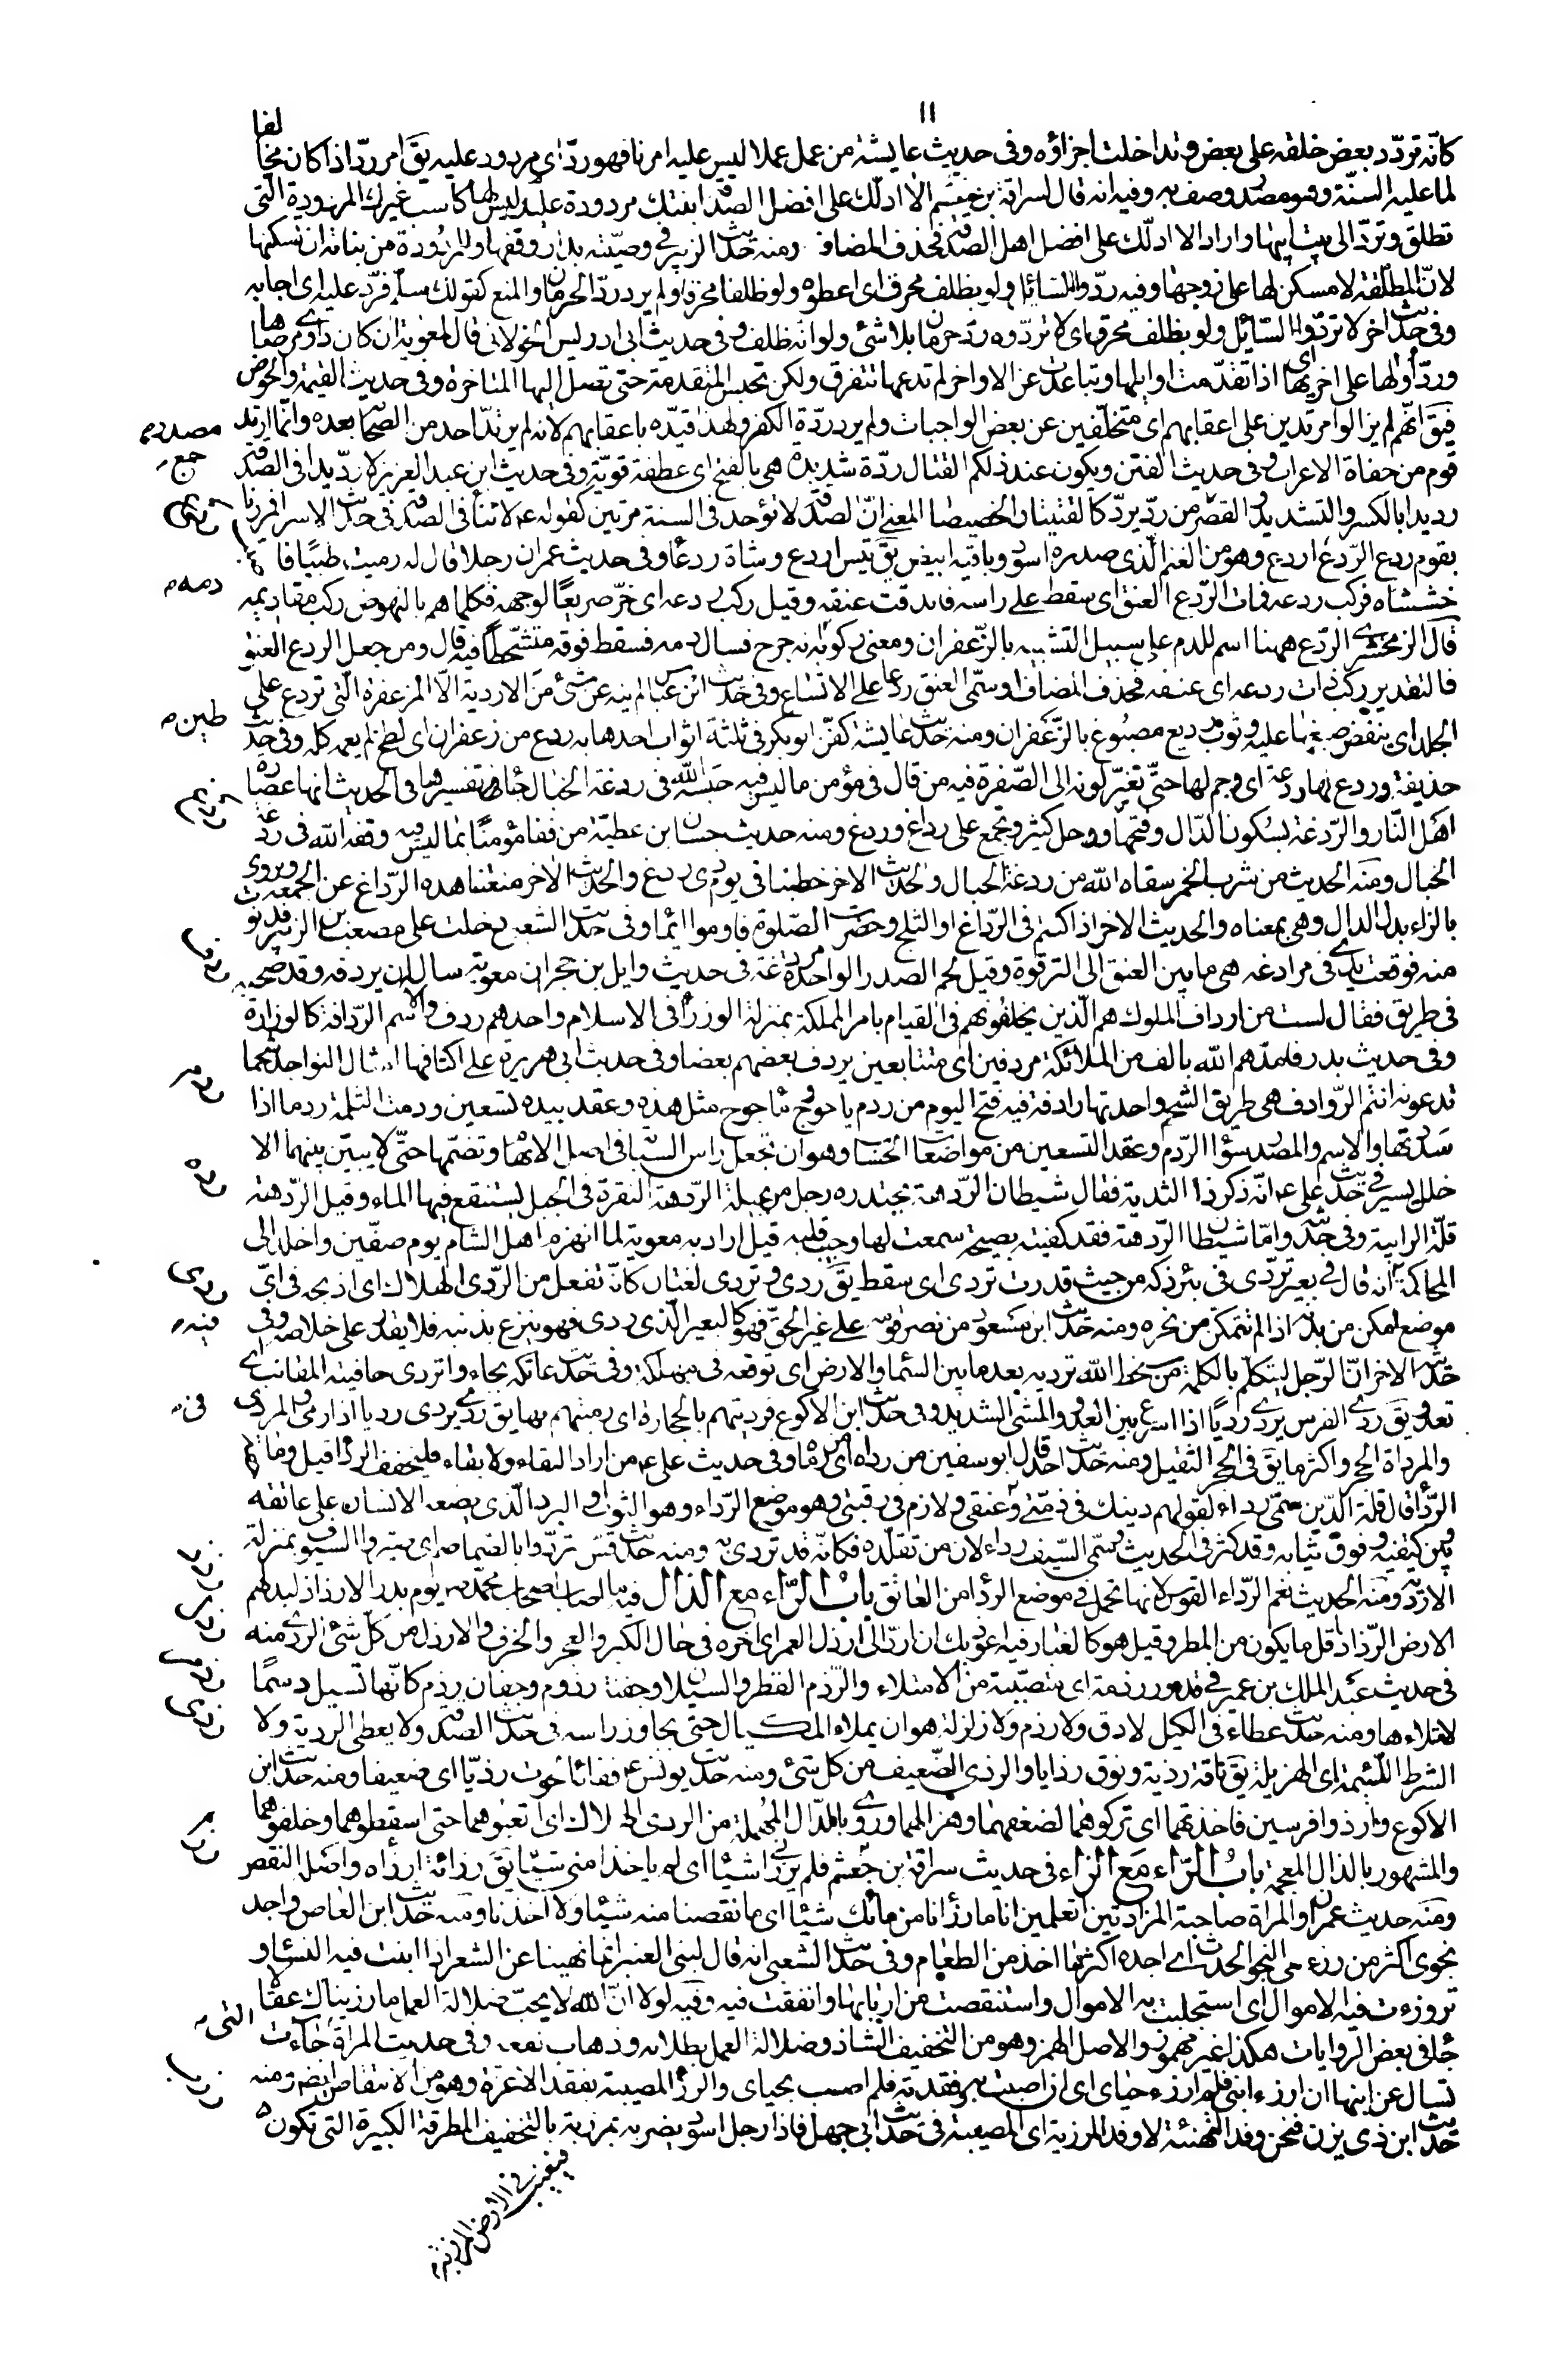 ١١
كانّه تردّد بعض خلقه على بعض وتداخلت اجزاؤه وفى حديث عايشة من عمل عملا ليس عليه امرنا فهو ردّ اى مردود عليه يق امر ردّ اذا كان مخالفا
لما عليه السنّة وهو مصدر وصف به وفيه انه قال لسراقة بن جعشم الا ادلّك على افضل الصدقة ابنتك مردودة عليك ليس لها كاسب غيرك المردودة التى
تطلق وتردّ الى بيت ابيها واراد الا ادلّك على افضل اهل الصدقة فحذف المضاف ومنه حديث الزبير فى وصيّته بدار وقفها وللمردودة من بناته ان تسكنها
لانّ المطلّقة لا مسكن لها على زوجها وفيه ردّوا السّائل ولو بظلف محرق اى اعطوه ولو ظلفا محرقا ولم يرد ردّ الحرمان والمنع كقولك سلّم فردّ عليه اى اجابه
وفى حديث اخر لا تردّوا السّائل ولو بظلف محرق اى لا تردّوه ردّ حرمان بلا شئ ولو انّه ظلف وفى حديث ابى ادريس الخولانى قال لمعوية ان كان داوى مرضاها
وردّ اولها على اخريها اى اذا تقدّمت اوايلها وتباعدت عن الاواخر لم تدعها تتفرق ولكن تحبس المتقدمة حتى تصل اليها المتاخرة وفى حديث القيمة والحوض
فيق انّهم لم يزالوا مرتدين على اعقابهم اى متخلّفين عن بعض الواجبات ولم يرد ردّة الكفر ولهذا قيّده باعقابهم لانه لم يرتدّ احد من الصحابة بعده وانّما ارتد
قوم من جفاة الاعراب وفى حديث الفتن ويكون عند ذلكم القتال ردّة شديدة هى بالفتح اى عطفة قويّة وفى حديث ابن عبد العزيز لا ردّيدا فى الصدقة
رديدا بالكسر والتشديد والقصر من ردّ يردّ كالقتيتا والخصيصا المعنى انّ الصدقة لا تؤخذ فى السنة مرتين كقوله ع لا ثنا فى الصدقة فى حديث الاسرا فمررنا
بقوم ردع الرّدع اردع وهو من الغنم الّذى صدره اسود وباقيه ابيض يق تيس اردع وشاة ردعا وفى حديث عمران رجلا قال له رميت ظبيًا فا
خششاه فركب ردعه فمات الرّدع العنق اى سقط على راسه فاندقت عنقه وقيل ركب ردعه اى خرّ صريعًا لوجهه فكلما هم بالنهوض ركب مقاديمه
قال الزمخشرى الرّدع ههنا اسم للدم على سبيل التشبيه بالزّعفران ومعنى ركوبه انه جرح فسال دمه فسقط فوقه متشحّطًا فيه قال ومن جعل الردع العنق
فالتقدير ركب ذات ردعه اى عنقه فحذف المضاف او سمّى العنق ردعا على الاتساع وفى حديث ابن عباس لم ينه عن شئ من الاردية الّا المزعفرة الّتى تردع على
الجلد اى تنفض صبغها عليه وثوب رديع مصبوغ بالزّعفران ومنه حديث عايشة كفّن ابو بكر فى ثلثة اثواب احدها به ردع من زعفران اى لطخ لم يعمه كله وفى حديث
حذيفة وردع لها ردعة اى وجم لها حتّى تغيّر لونه الى الصّفرة فيه من قال فى مؤمن ما ليس فيه حبسه الله فى ردغة الخبال جاء تفسيرها فى الحديث انها عصارة
اهل النّار والرّدغة بسكون الدّال وفتحها ووحل كثير وتجمع على رداغ وردغ ومنه حديث حسان بن عطيّة من قفا مؤمنًا بما ليس فيه وقفه الله فى ردغة
الخبال ومنه الحديث من شرب الخمر سقاه الله من ردغة الخبال والحديث الاخر خطبنا فى يوم ذى ردغ والحديث الاخر منعتنا هذه الرّداغ عن الجمعة ويروى
بالزاء بدل الدال وهى بمعناه والحديث الاخر اذا كنتم فى الرّداغ او الثلج وحضرت الصّلوة فاوموا ايما وفى حديث الشعبى دخلت على مصعب بن الزبير فدنوت
منه فوقعت يدى فى مرادغه هى ما بين العنق الى الترقوة وقيل لحم الصدر الواحدة مردغة فى حديث وايل بن حجر ان معوية سال ان يردفه وقد صحبه
فى طريق فقال لست من ارداف الملوك هم الّذين يخلفونهم فى القيام بامر المملكة بمنزلة الوزرآء فى الاسلام واحدهم ردف والاسم الرّدافة كالوزارة
وفى حديث بدر فامدّهم الله بالف من الملائكة مردفين اى متتابعين يردف بعضهم بعضا وفى حديث ابى هريرة على اكتافها امثال النواجد شحما
تدعونه انتم الرّوادف هى طريق الشحم واحدتها رادفة فيه فتح اليوم من ردم ياجوج وماجوج مثل هذه وعقد بيده تسعين ردمت الثلمة ردما اذا
سددتها والاسم والمصدر سوآء الرّدم وعقد التسعين من مواضعات الحساب وهو ان تجعل راس السّبابة فى اصل الابهام وتضمّها حتّى لا يبيّن بينهما الا
خلل يسير فى حديث على ع انّه ذكر ذا الثدية فقال شيطان الرّدهة يحتدره رجل من بجيلة الرّدهة النقرة فى الجبل يستنقع فيها الماء وقيل الرّدهة
قلّة الرابية وفى حديثه وامّا شيطان الرّدهة فقد كفيته بصيحة سمعت لها وجيب قلبه قيل اراد به معوية لما انهزم اهل الشام يوم صفّين واخلد الى
المحاكمة انه قال فى بعير تردّى فى بئر ذكّه من حيث قدرت تردى اى سقط يق ردى وتردى لغتان كانّه تفعل من الرّدى الهلاك اى اذبحه فى اىّ
موضع امكن من بدنه اذا لم تتمكن من نحره ومنه حديث ابن مسعود من نصر قومه على غير الحق فهو كالبعير الّذى ردى فهو ينزع بذنبه فلا يقدر على خلاصه وفى
حديثه الاخر انّ الرّجل ليتكلّم بالكلمة من سخط الله ترديه بعد ما بين السّماء والارض اى توقعه فى مهلكة وفى حديث عاتكة بجاءواء تردى حافتيه المقانب اى
تعدو يق ردى الفرس يردى رديًا اذا اسرع بين العدو والمشى الشديد وفى حديث ابن الاكوع فرديتهم بالحجارة اى رميتهم بها يق ردى يردى رديا اذا رمى والمردى
والمرداة الحجر واكثر ما يق فى الحجر الثقيل ومنه حديث احد قال ابو سفين من رداه اى رماه وفى حديث على ع من اراد البقاء ولا بقاء فليخفف الردا قيل وما
الرّدا قال قلة الدّين سمّى رداء لقولهم دينك فى ذمّتى وفى عنقى ولازم فى رقبتى وهو موضع الرّداء وهو الثوب او البرد الّذى يضعه الانسان على عاتقه
وبين كتفيه وفوق ثيابه وقد كثر فى الحديث وسمّى السّيف رداء لان من تقلّده فكانّه قد تردى به ومنه حديث قس تردّوا بالصماصم اى صيّروا السيوف بمنزلة
الاردية ومنه الحديث نعم الرّداء القوس لانها تحمل فى موضع الردا من العاتق باب الرّاء مع الذال فيه ما اصاب اصحاب محمد ص يوم بدر الا رذاذ لبدلهم
الارض الرّذاذ اقل ما يكون من المطر وقيل هو كالغبار فيه اعوذ بك ان اردّ الى ارذل العمر اى اخره فى حال الكبر والعجز والخرف والارذل من كل شئ الردى منه
فى حديث عبد الملك بن عمير فى قدور رذمة اى متصبّبة من الامتلاء والرّذم القطر والسيلان وجفنة رذوم وجفان رذم كانّها تسيل دسمًا
لامتلاءها ومنه حديث عطاء فى الكيل لا دق ولا رذم ولا زلزلة هو ان يملاء المكيال حتى يجاوز راسه فى حديث الصدقة ولا يعطى الرذية ولا
الشرط اللّئيمة اى الهزيلة يق ناقة رذية ونوق رذايا والرذى الضّعيف من كل شئ ومنه حديث يونس ع فقائه الحوت رذيّا اى ضعيفا ومنه حديث ابن
الاكوع وارذوا فرسين فاخذتهما اى تركوهما لضعفهما وهزالهما وروى بالدّال المهملة من الردى الهلاك اى اتعبوهما حتى اسقطوهما وخلفوهما
والمشهور بالذال المعجمة باب الرّاء مع الزاء فى حديث سراقة بن جعشم فلم يرزآنى شيئًا اى لم ياخذا منى شيئًا يق رزائه ارزاه واصل النقص
ومنه حديث عمران والمراة صاحبة المزادتين اتعلمين انا ما رزأنا من مائك شيئا اى ما نقصنا منه شيئا ولا اخذنا ومنه حديث ابن العاص واجد
نجوى اكثر من رزءى النجو الحدث اى اجده اكثر مما اخذ من الطعام وفى حديث الشعبى انه قال لبنى العنبر انما نهينا عن الشعر اذا ابنت فيه النساء و
تروزءت فيه الاموال اى استجلبت به الاموال واستنقصت من اربابها وانفقت فيه وفيه لولا انّ الله لا يحبّ ضلالة العمل ما رزيناك عقالا
جا فى بعض الرّوايات هكذا غير مهموز والاصل الهمز وهو من التخفيف الشاذ وضلالة العمل بطلانه وذهاب نفعه وفى حديث المراة التى جاءت
تسال عن ابنها ان ارزء ابنى فلم ارزء حياى اى ان اصبت به وفقدته فلم اصب بحياى والرزء المصيبة بفقد الاعزة وهو من الانتقاص ايضم ومنه
حديث ابن ذى يزن فنحن وفد التهنئة لا وفد المرزية اى المصيبة فى حديث ابى جهل فاذا رجل اسود يضربه بمرزبة بالتخفيف المطرقة الكبيرة التى تكون